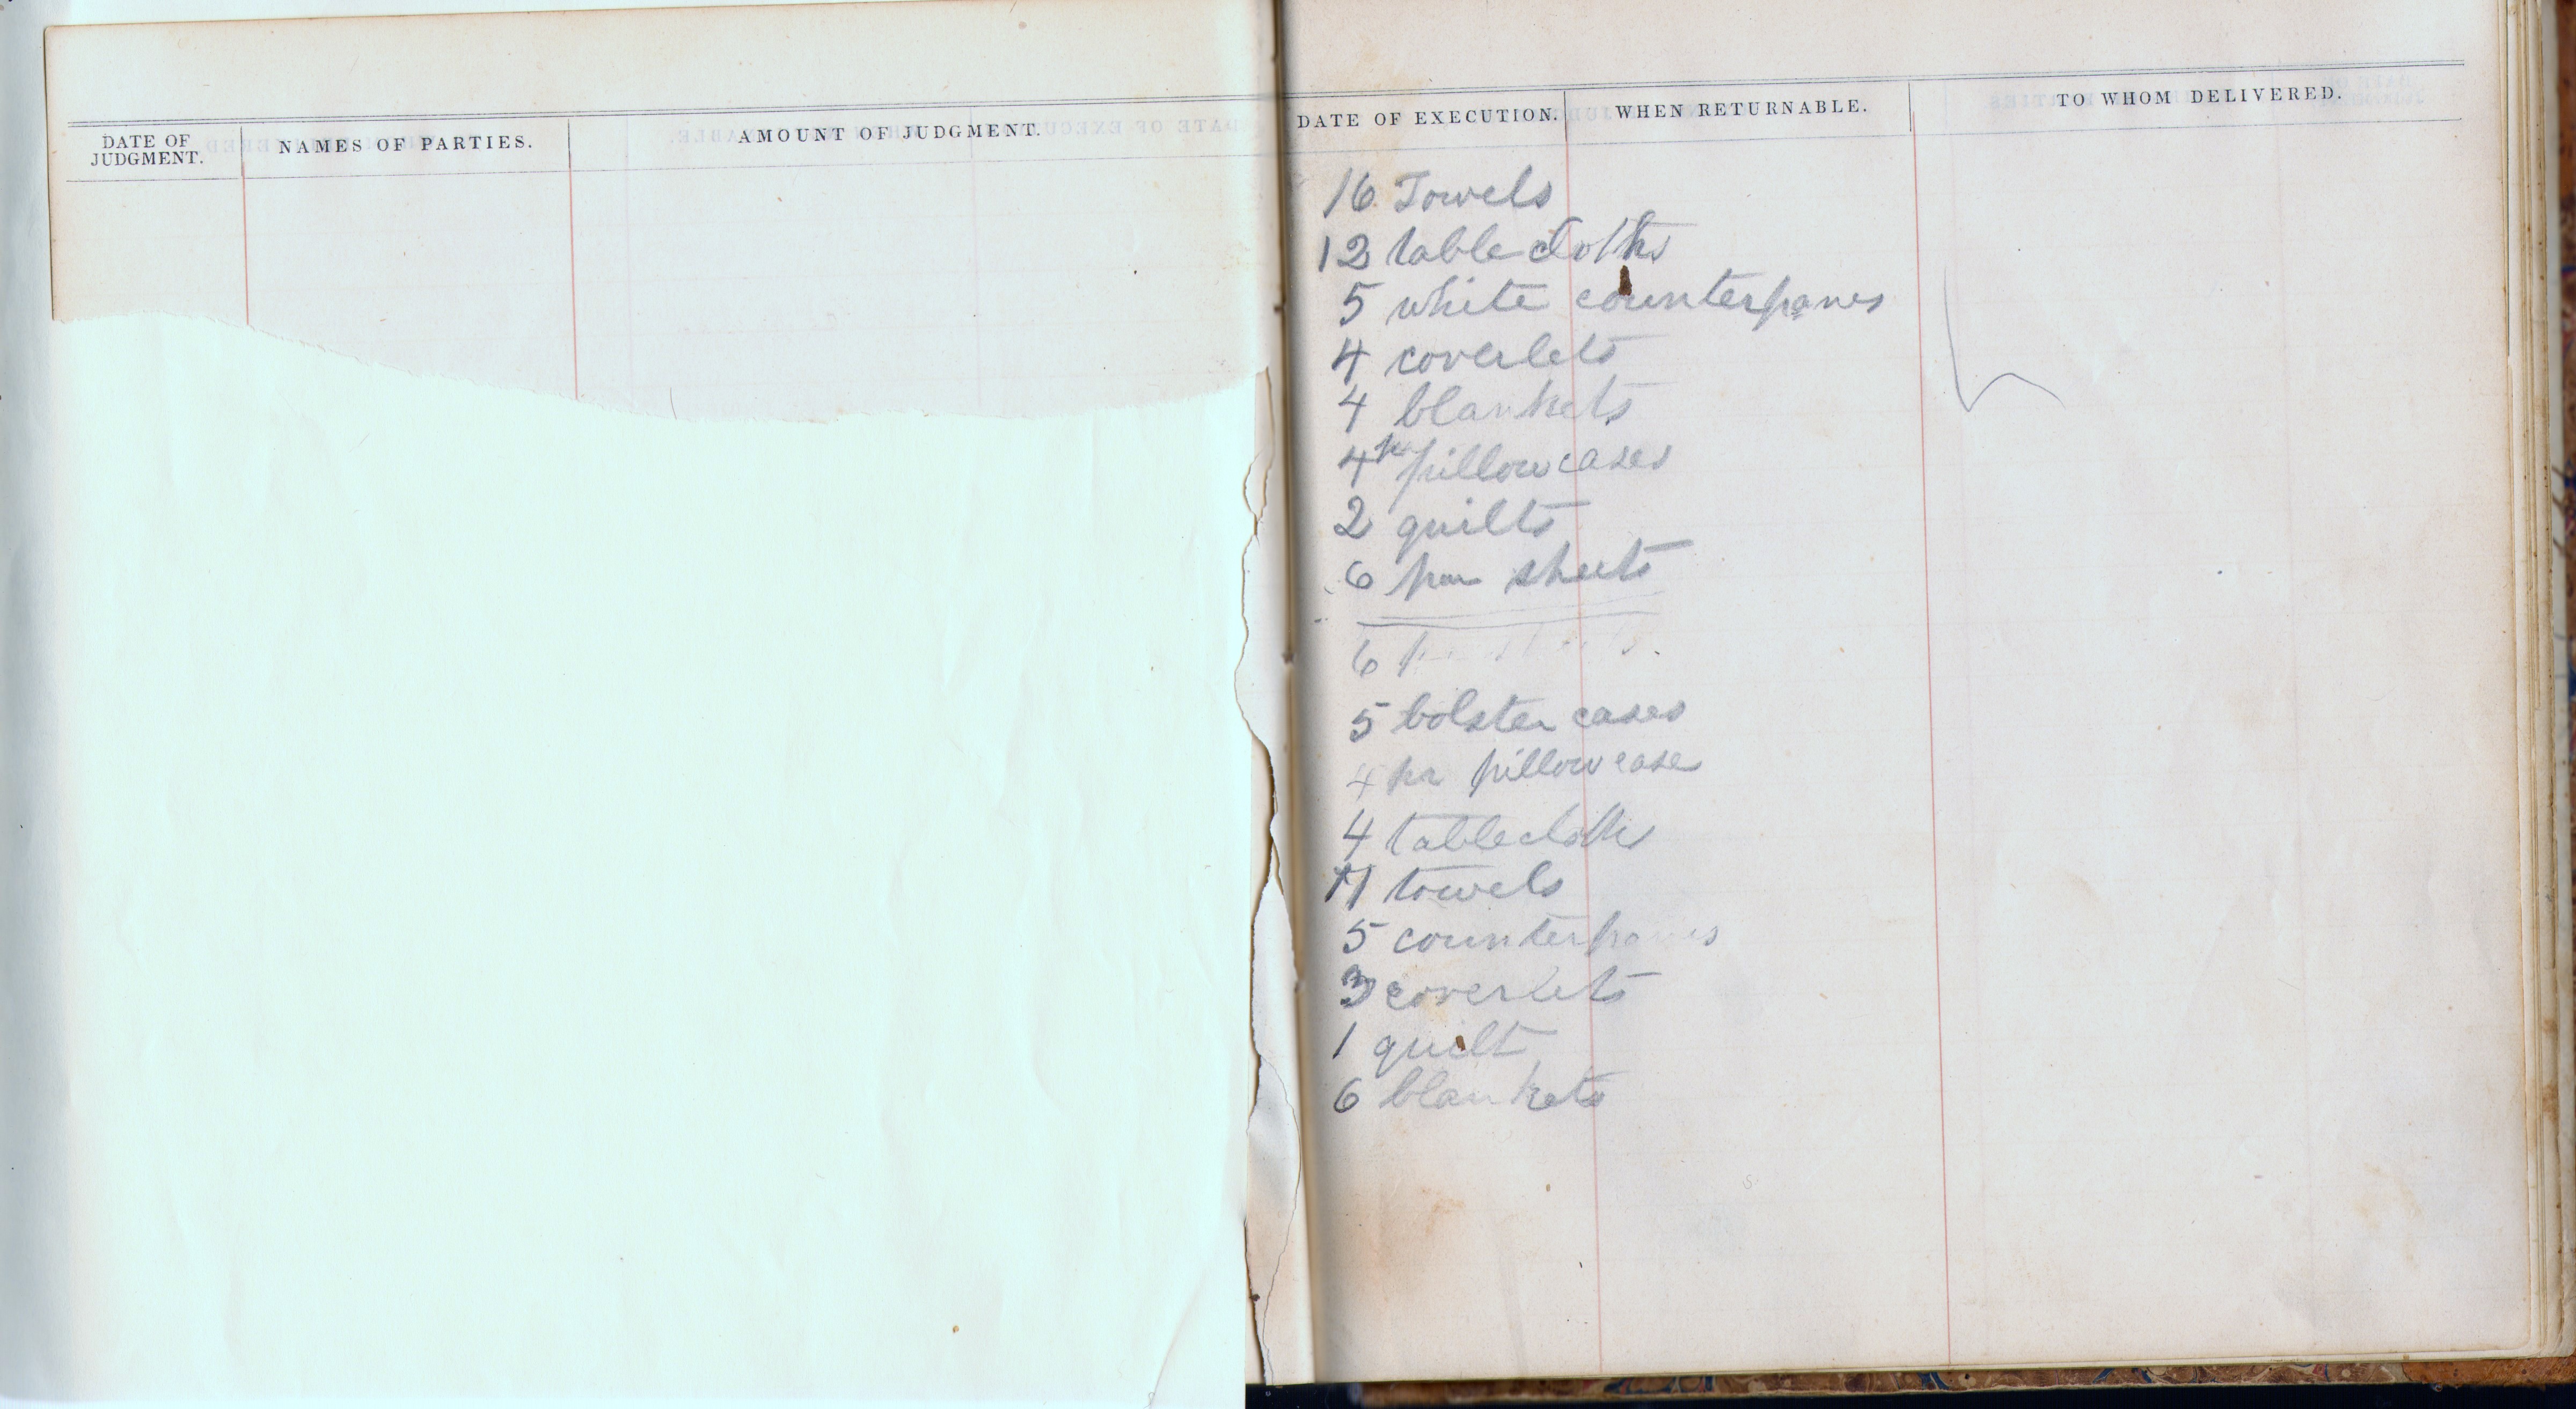 DATE OF JUDGMENT.
NAMES OF PARTIES.
AMOUNT OF JUDGMENT.
DATE OF EXECUTION.
WHEN RETURNABLE.
TO WHOM DELIVERED.
16 Towels
12 table cloths
5 white counterpanes
4 coverlets
4 blankets
4 pr pillow cases
2 quilts
6 pair sheets
6
5 bolster cases
4 pr pillow case
4 tablecloths
11 towels
5 counterpanes
3 coverlets
1 quilt
6 blankets